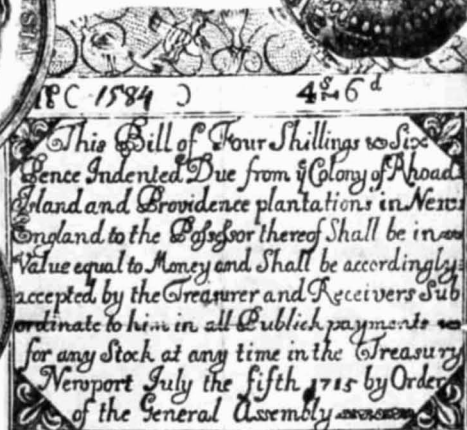 ( 1584 ) 4s 6d
This Bill of Four Shillings & Six
Pence Indented Due from ye Colony of Rhoad
Island and Providence plantations in New
England to the Possessor thereof Shall be in
Value equal to Money and Shall be accordingly
accepted by the Treasurer and Receivers Sub
ordinate to him in all Publick payments &
for any Stock at any time in the Treasury
Newport July the fifth 1715 by Order
of the General Assembly